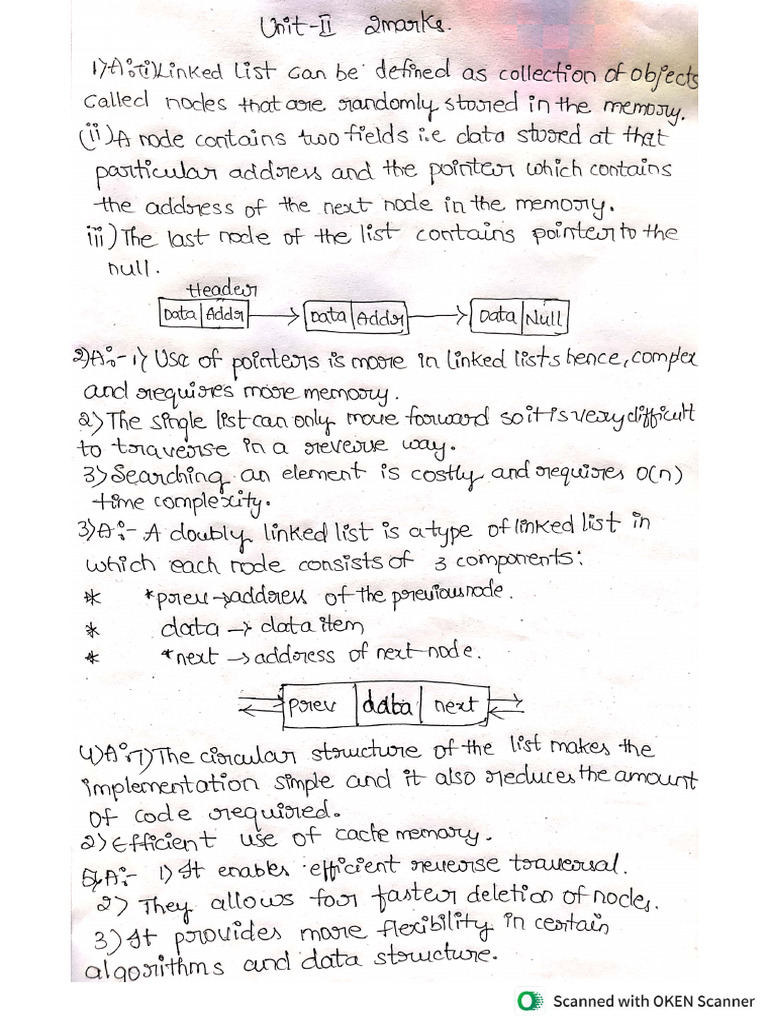 Unit-II 2marks.
1)A:-i)Linked List can be defined as collection of objects
called nodes that are randomly stored in the memory.
(ii)A node contains two fields i.e data stored at that
particular address and the pointer which contains
the address of the next node in the memory.
iii) The last node of the list contains pointer to the
null.
Header
Data Addr Data Addr Data Null
2)A:- 1) Use of pointers is more in linked lists hence, complex
and requires more memory.
2) The single list can only move forward so it is very difficult
to traverse in a reverse way.
3) Searching an element is costly and requires O(n)
time complexity.
3)A:- A doubly linked list is a type of linked list in
which each node consists of 3 components:
* *prev → address of the previous node.
* data → data item
* *next → address of next node.
prev data next
4)A:-1) The circular structure of the list makes the
implementation simple and it also reduces the amount
of code required.
2) Efficient use of cache memory.
5)A:- 1) It enables efficient reverse traversal.
2) They allows for faster deletion of nodes.
3) It provides more flexibility in certain
algorithms and data structure.
Scanned with OKEN Scanner